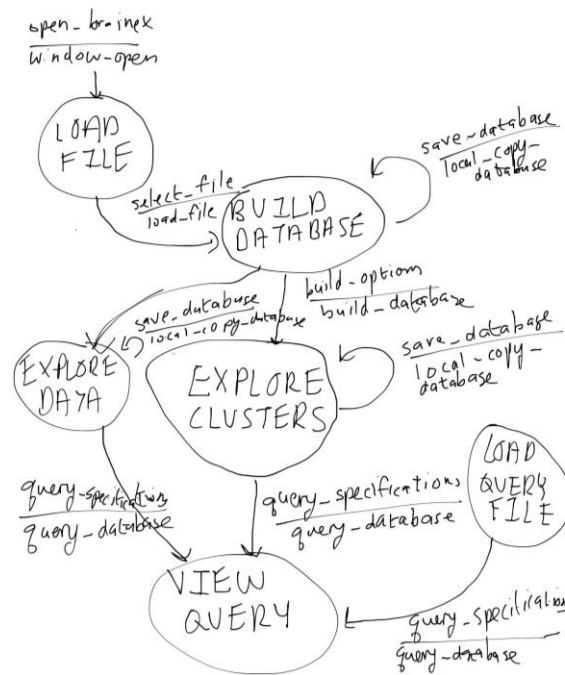 open_brainex
window-open
LOAD
FILE
select_file
load_file
BUILD
DATABASE
save_database
local_copy_
database
build_options
build_database
save_database
local_copy_database
EXPLORE
DATA
EXPLORE
CLUSTERS
save_database
local_copy_
database
LOAD
QUERY
FILE
query_specifications
query_database
query_specifications
query_database
VIEW
QUERY
query_specification
query_database